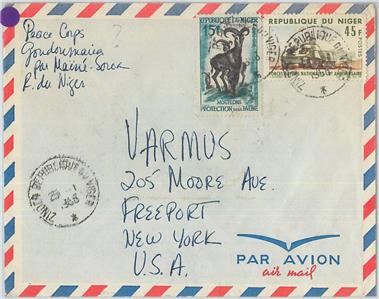 Peace Corps
Goudoumaria
par Mainé-Soroa
R. du Niger
REPUBLIQUE DU NIGER
15F
MOUFLONS
PROTECTION DE LA FAUNE
REPUBLIQUE DU NIGER
45F
POSTES
FORCES ARMEES NATIONALES 1ER ANNIVERSAIRE
ZINDER REPUBLIQUE DU NIGER
VARMUS
205 MOORE AVE.
FREEPORT
NEW YORK
U.S.A.
PAR AVION
air mail